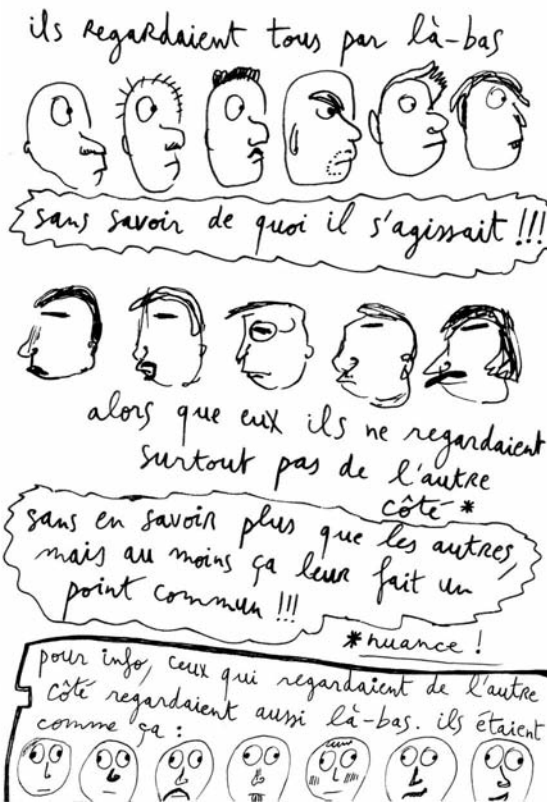 ils regardaient tous par là-bas
sans savoir de quoi il s'agissait !!!
alors que eux ils ne regardaient
surtout pas de l'autre
côté *
sans en savoir plus que les autres,
mais au moins ça leur fait un
point commun !!!
* nuance !
pour info, ceux qui regardaient de l'autre
côté regardaient aussi là-bas. ils étaient
comme ça :